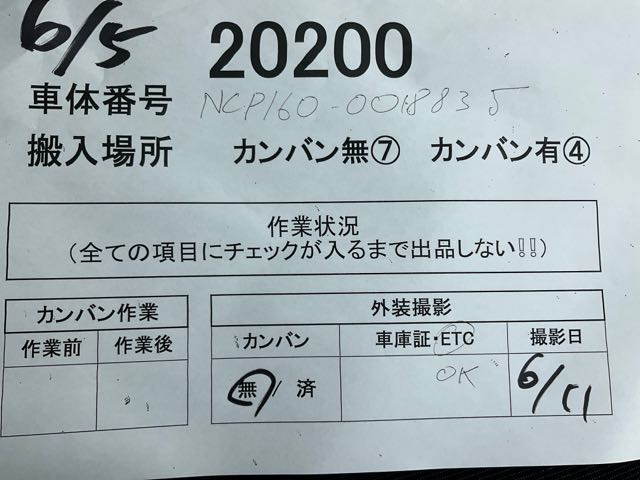 6/5 20200
車体番号 NCP160-0018835
搬入場所 カンバン無⑦ カンバン有④
作業状況
(全ての項目にチェックが入るまで出品しない!!)
カンバン作業
作業前 作業後
外装撮影
カンバン 車庫証・ETC 撮影日
無/済 OK 6/11